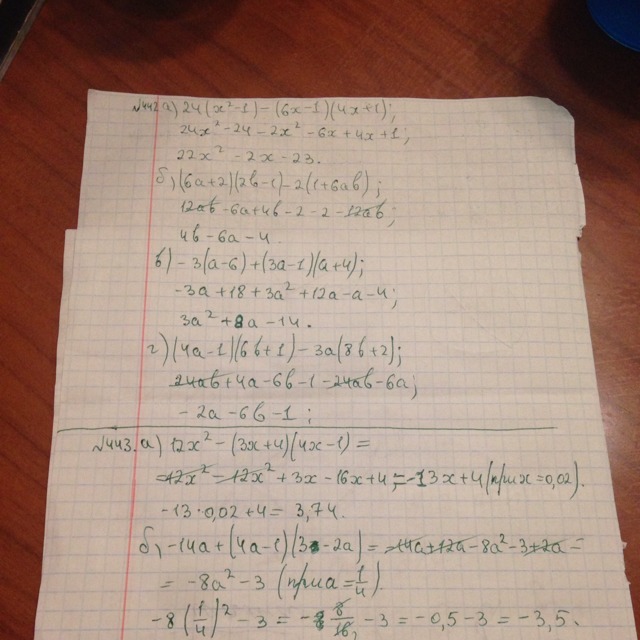 №442 а) 24(x²-1)-(6x-1)(4x+1);
24x²-24-2x²-6x+4x+1;
22x²-2x-23.
б) (6a+2)(2b-1)-2(1+6ab);
12ab-6a+4b-2-2-12ab;
4b-6a-4.
в) -3(a-6)+(3a-1)(a+4);
-3a+18+3a²+12a-a-4;
3a²+8a-14.
г) (4a-1)(6b+1)-3a(8b+2);
24ab+4a-6b-1-24ab-6a;
-2a-6b-1;
№443. а) 12x²-(3x+4)(4x-1)=
12x²-12x²+3x-16x+4=-13x+4 (при x=0,02).
-13·0,02+4=3,74.
б) -14a+(4a-1)(3-2a)=-14a+12a-8a²-3+2a=
=-8a²-3 (при a=1/4).
-8(1/4)²-3=-8/16-3=-0,5-3=-3,5.